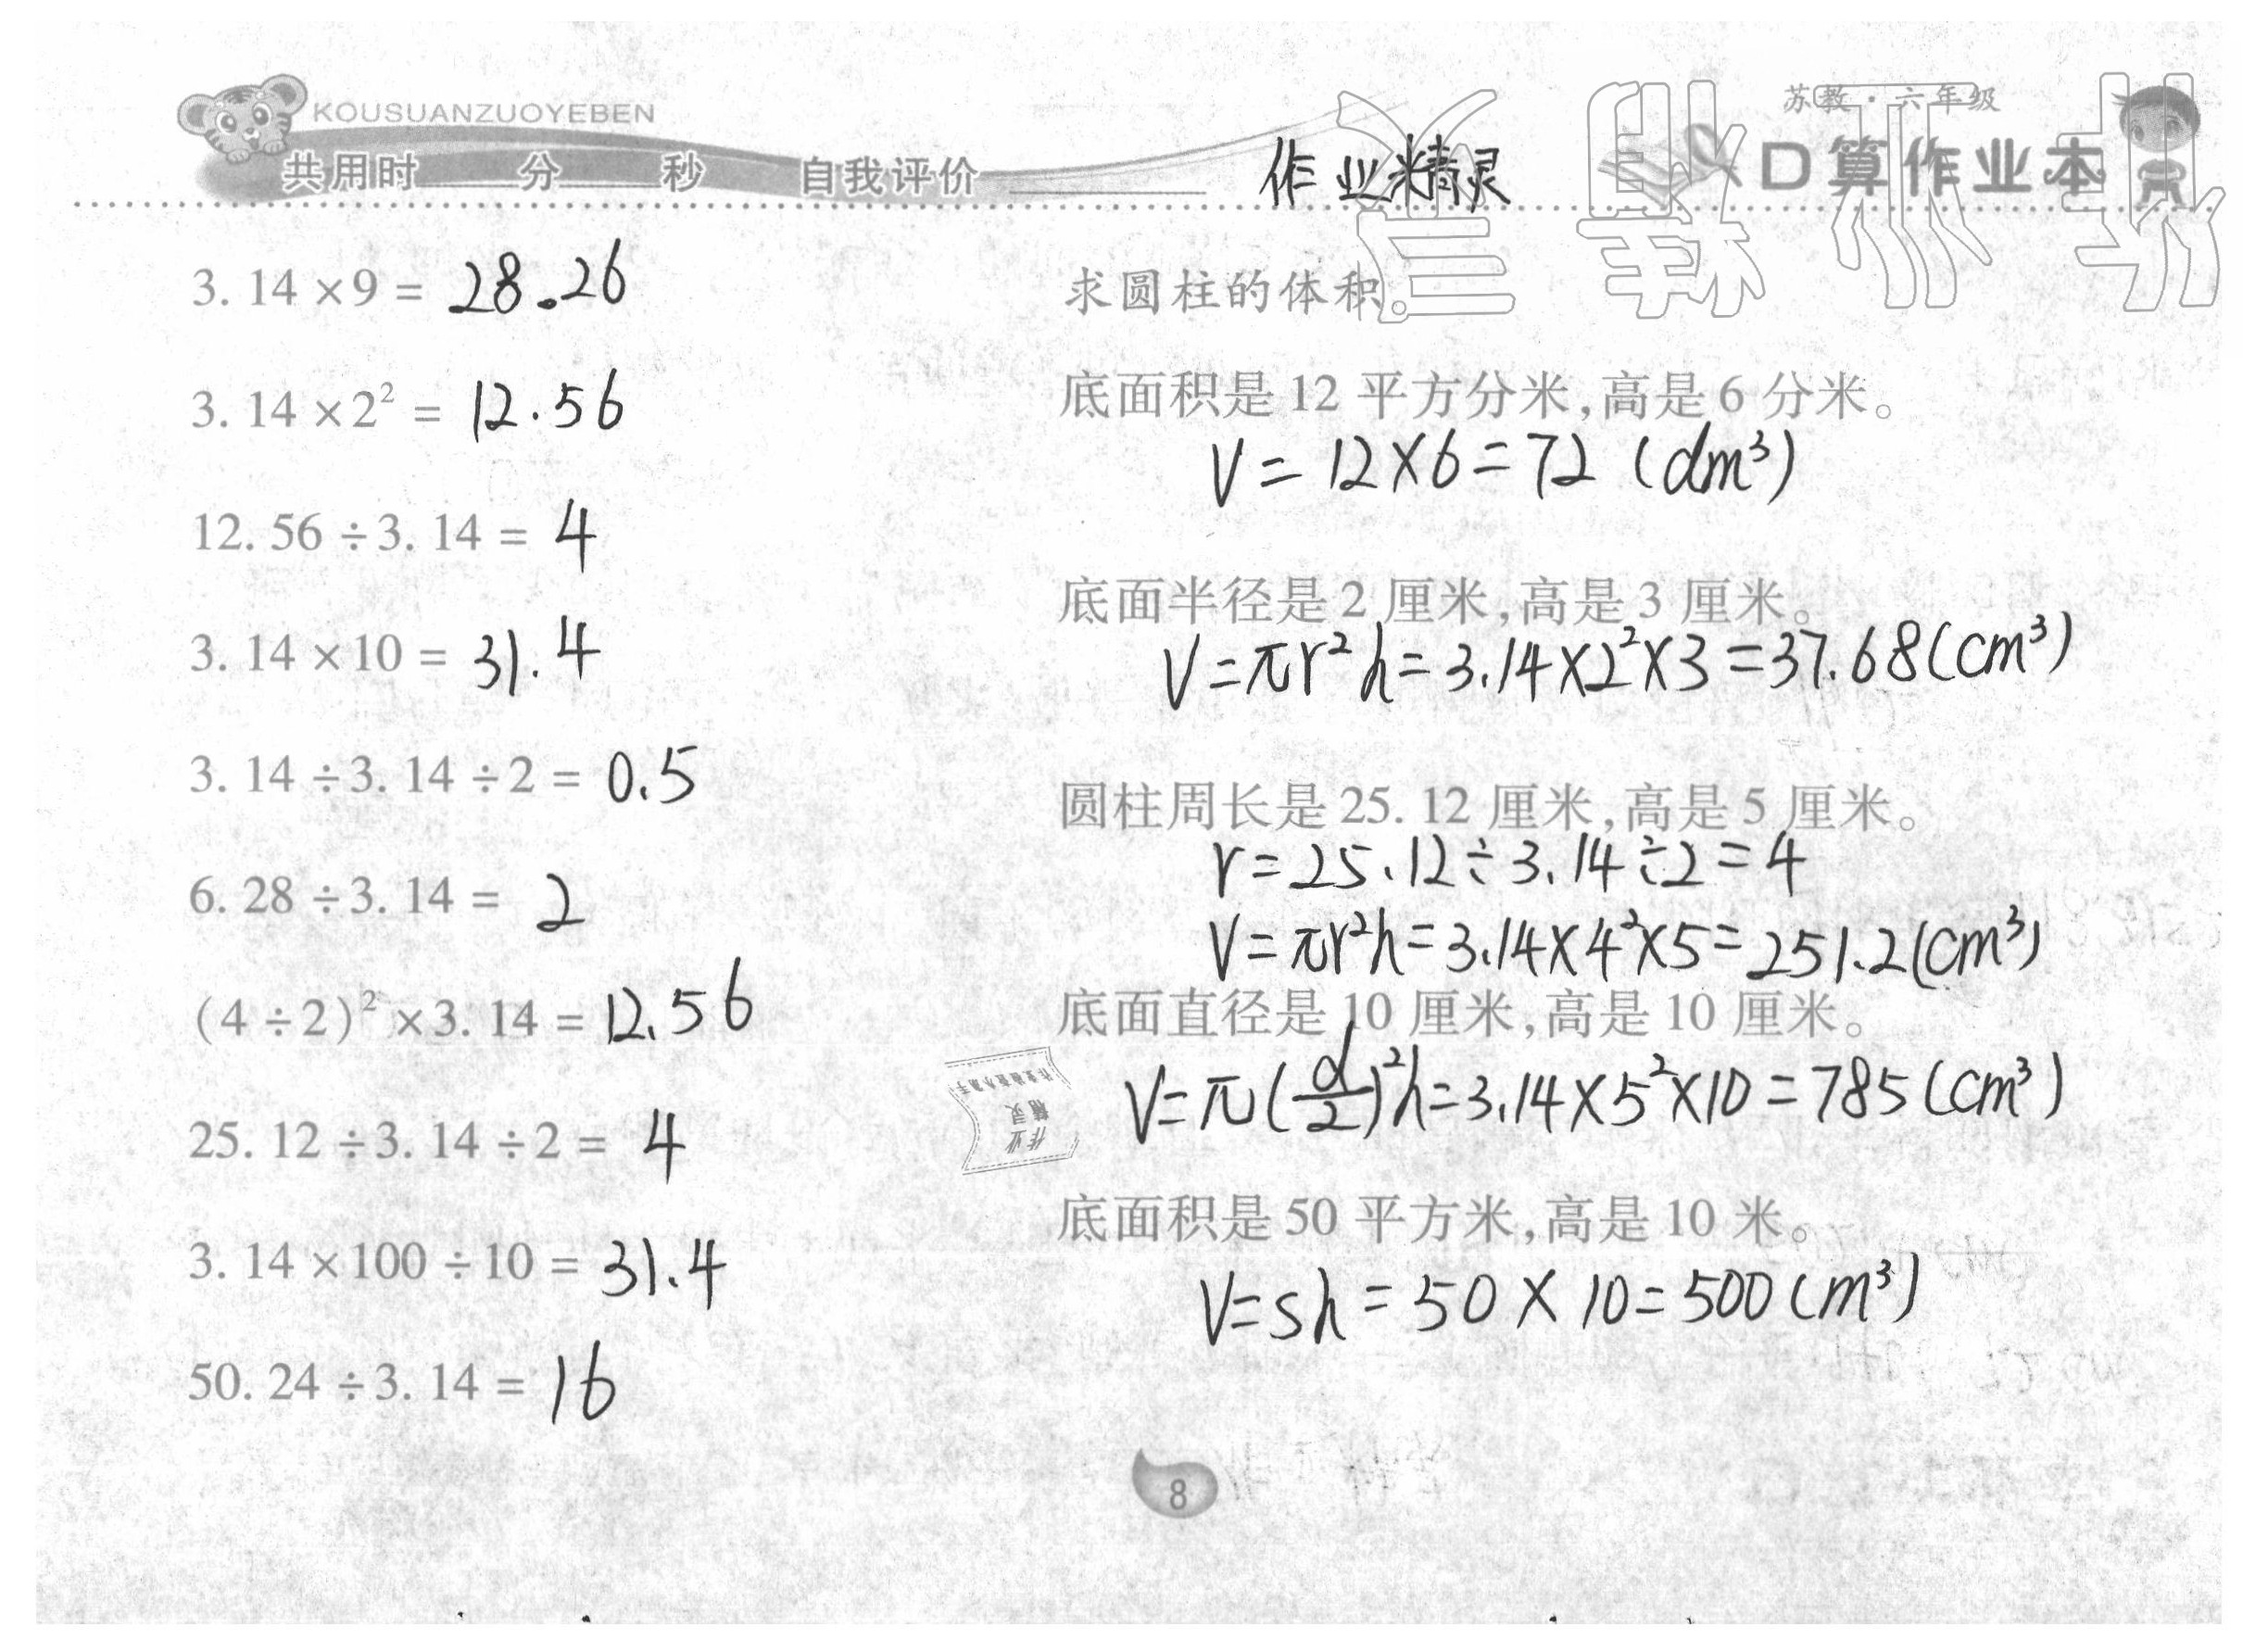 KOUSUANZUOYEBEN
共用时 分 秒 自我评价
作业精灵
苏教·六年级
口算作业本
3.14×9= 28.26
3.14×2²= 12.56
12.56÷3.14= 4
3.14×10= 31.4
3.14÷3.14÷2= 0.5
6.28÷3.14= 2
(4÷2)²×3.14= 12.56
25.12÷3.14÷2= 4
3.14×100÷10= 31.4
50.24÷3.14= 16
求圆柱的体积。
底面积是12平方分米,高是6分米。
V=12×6=72(dm³)
底面半径是2厘米,高是3厘米。
V=πr²h=3.14×2²×3=37.68(cm³)
圆柱周长是25.12厘米,高是5厘米。
r=25.12÷3.14÷2=4
V=πr²h=3.14×4²×5=251.2(cm³)
底面直径是10厘米,高是10厘米。
V=π(d/2)²h=3.14×5²×10=785(cm³)
底面积是50平方米,高是10米。
V=sh=50×10=500(m³)
作业精灵
8